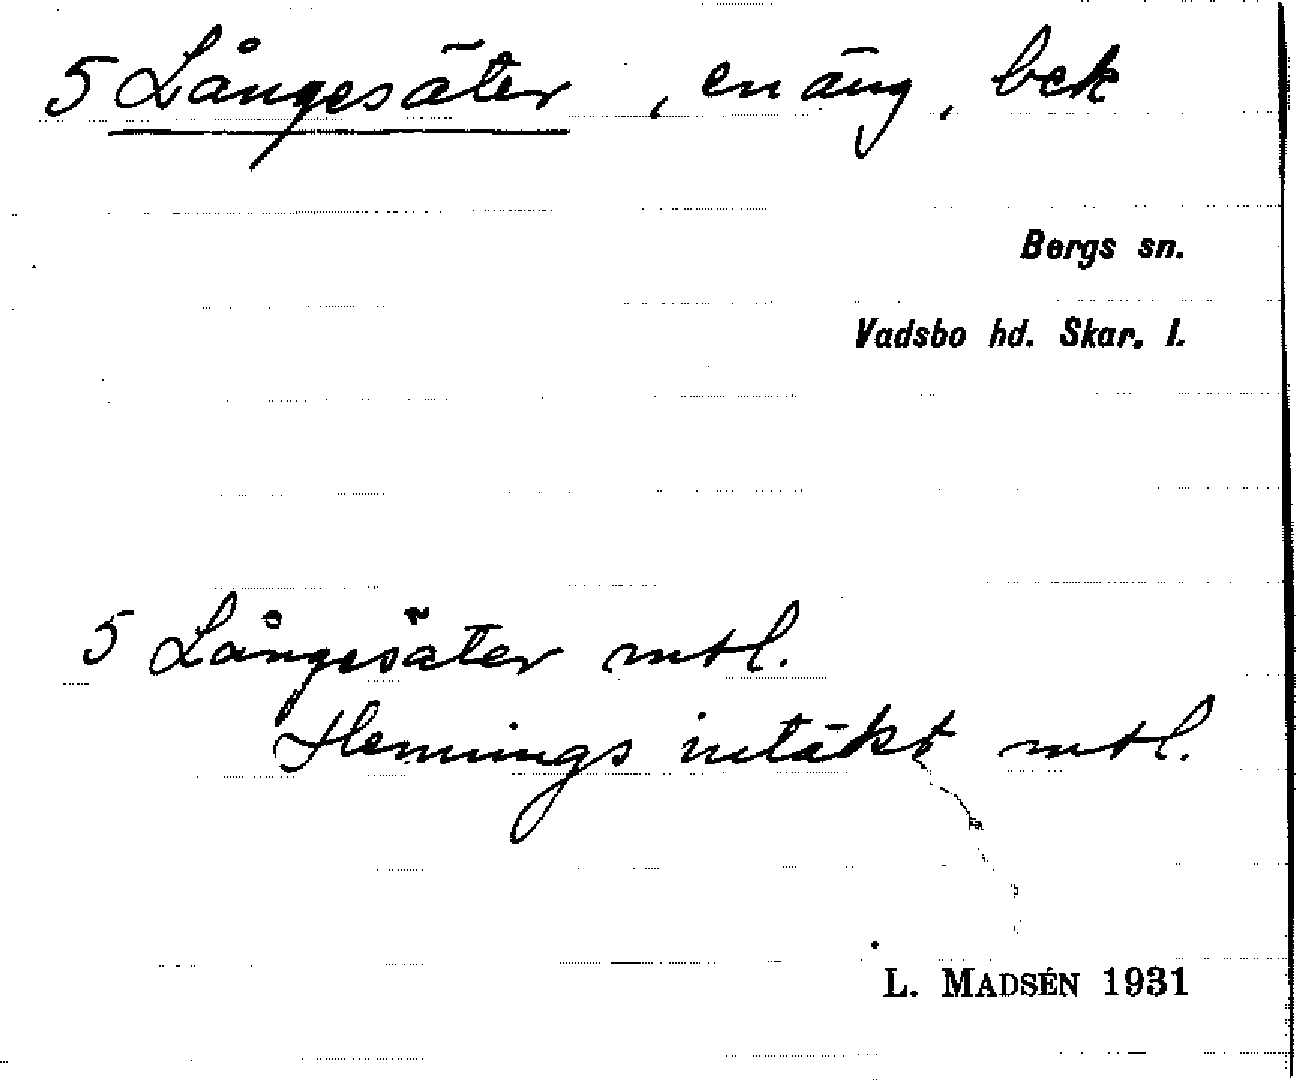 5 Långesäter, en äng, bek
Bergs sn.
Vadsbo hd. Skar. l.
5 Långesäter mtl.
Hennings intäkt mtl.
L. MADSÉN 1931